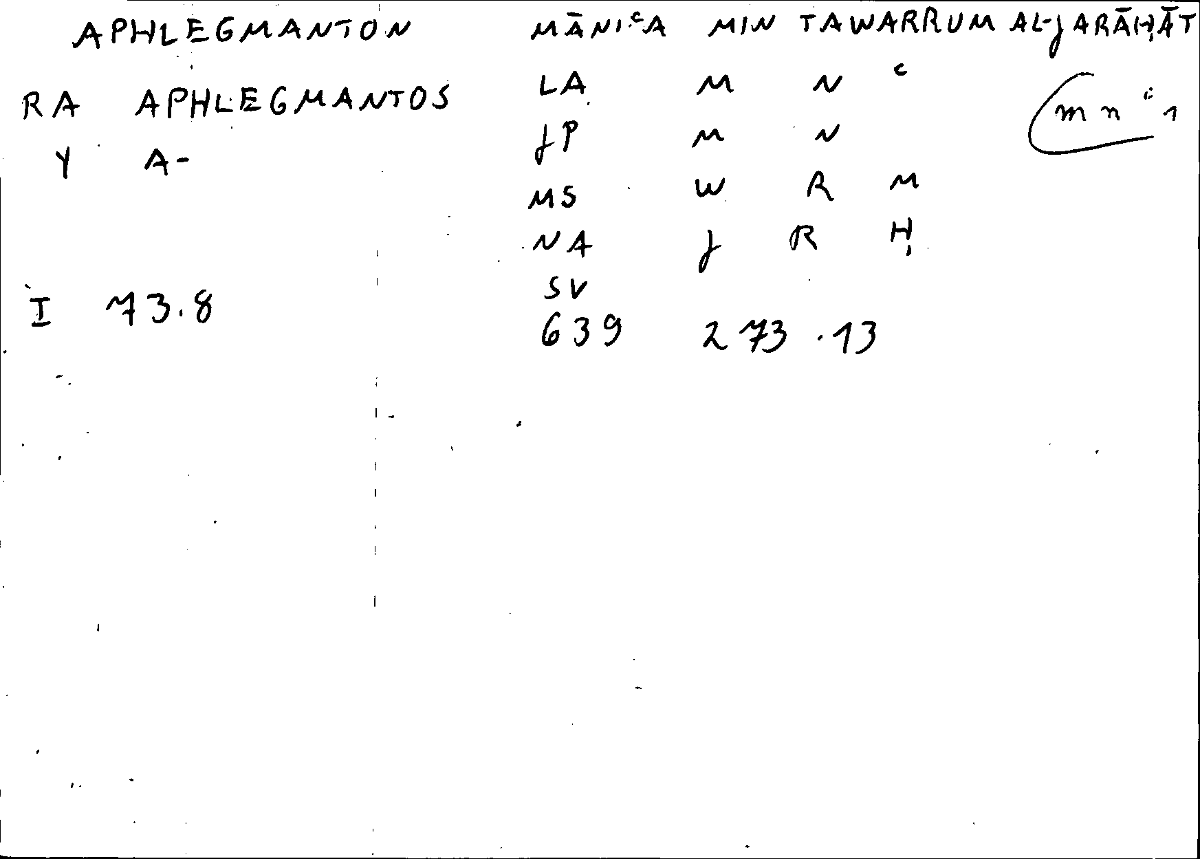 APHLEGMANTON MĀNIʿA MIN TAWARRUM AL-JARĀḤĀT
RA APHLEGMANTOS LA M N ʿ
Y A- JP M N
MS W R M
NA J R Ḥ
SV
I 73.8 639 273.13